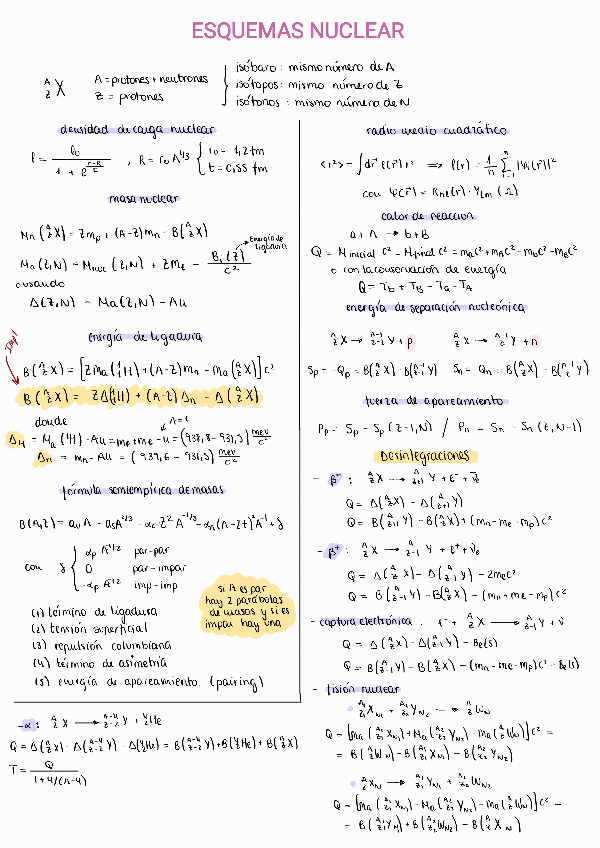 ESQUEMAS NUCLEAR
A Z X
A = protones + neutrones
Z = protones
isóbaro: mismo número de A
isótopos: mismo número de Z
isótonos: mismo número de N
densidad de carga nuclear
ρ = ρ₀ / (1 + e^((r-R)/t)) , R = r₀ A^1/3 { r₀ = 1,2 fm
t = 0,55 fm
masa nuclear
M_n (A Z X) = Z m_p + (A-Z) m_n - B (A Z X)
M_a (Z,N) = M_nuc (Z,N) + Z m_e - B_i(Z) / c²
Energía de ligadura
o usando
Δ(Z,N) = Ma(Z,N) - Au
energía de ligadura
Imp!
B (A Z X) = [Z Ma (1 1 H) + (A-Z) m_n - Ma (A Z X)] c²
B (A Z X) = Z Δ(1 1 H) + (A-Z) Δn - Δ (A Z X)
donde
A=1
Δ_H = M_a (1H) - Au = m_p + m_e - u = (938,8 - 931,5) MeV/c²
Δn = m_n - Au = (939,6 - 931,5) MeV/c²
fórmula semiempírica de masas
B(A,Z) = a_v A - a_s A^2/3 - α_c Z² A^-1/3 - α_a (A-2Z)² A^-1 + δ
con δ { α_p A^-1/2 par-par
0 par-impar
-α_p A^-1/2 imp-imp
si A es par
hay 2 parábolas
de masas y si es
impar hay una
(1) término de ligadura
(2) tensión superficial
(3) repulsión columbiana
(4) término de asimetría
(5) energía de apareamiento. (pairing)
- α: A Z X → A-4 Z-2 Y + 4 2 He
Q = Δ(A Z X) - Δ(A-4 Z-2 Y) - Δ(4 2 He) = B(A-4 Z-2 Y) + B(4 2 He) + B(A Z X)
T = Q / (1 + 4/(A-4))
radio medio cuadrático
<r²> = ∫ dr r² ρ(r) r² ⇒ ρ(r) = 1/n Σ n i=1 |ψi(r)|²
con ψ(r) = R_nl(r) · Y_lm (Ω)
calor de reacción
a + A → b + B
Q = M inicial c² - M final c² = m_a c² + m_A c² - m_b c² - m_B c²
o con la conservación de energía
Q = T_b + T_B - T_a - T_A
energía de separación nucleónica
A Z X → A-1 Z-1 Y + p   A Z X → A-1 Z Y + n
Sp = -Qp = B(A Z X) - B(A-1 Z-1 Y)   Sn = -Qn = B(A Z X) - B(A-1 Z Y)
fuerza de apareamiento
Pp = Sp - Sp (Z-1,N) / Pn = Sn - Sn (Z,N-1)
Desintegraciones
- β⁻: A Z X → A Z+1 Y + e⁻ + ν̄e
Q = Δ(A Z X) - Δ(A Z+1 Y)
Q = B(A Z+1 Y) - B(A Z X) + (mn - me - mp) c²
- β⁺: A Z X → A Z-1 Y + e⁺ + νe
Q = Δ(A Z X) - Δ(A Z-1 Y) - 2mec²
Q = B(A Z-1 Y) - B(A Z X) - (mn - me - mp) c²
- captura electrónica: e⁻ + A Z X → A Z-1 Y + ν
Q = Δ(A Z X) - Δ(A Z-1 Y) - Be(s)
Q = B(A Z-1 Y) - B(A Z X) - (mn - me - mp) c² - Be(s)
- fisión nuclear
• A1 Z1 X N1 + A2 Z2 Y N2 → A Z W N
Q = [ma (A1 Z1 X N1) + Ma (A2 Z2 Y N2) - ma (A Z W N)] c² =
= B(A Z W N) - B(A1 Z1 X N1) - B(A2 Z2 Y N2)
• A Z X N → A1 Z1 Y N1 + A2 Z2 W N2
Q = [ma (A Z X N) - Ma (A1 Z1 Y N1) - ma (A2 Z2 W N2)] c² =
= B(A1 Z1 Y N1) + B(A2 Z2 W N2) - B(A Z X N)